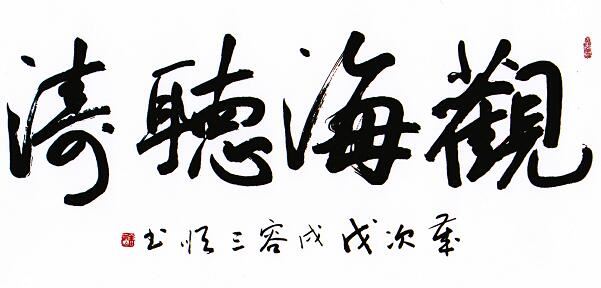 觀海聽濤
歲次戊戌容三順书